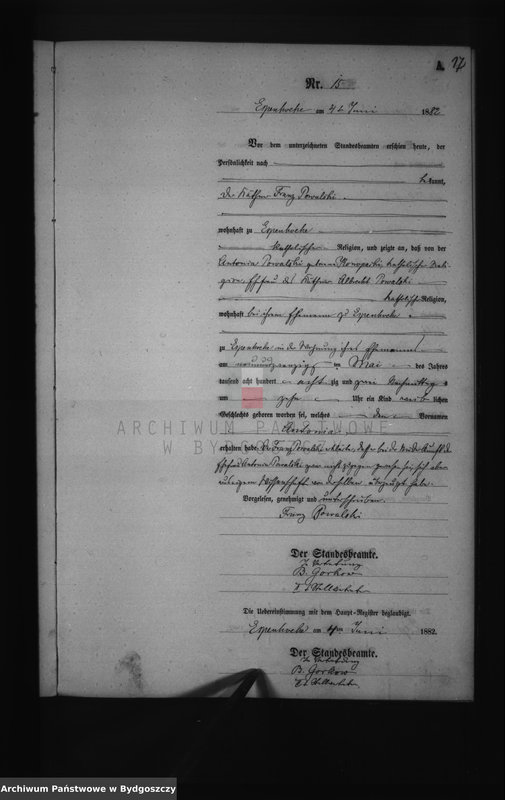 A. 17
Nr. 15
Espenhoehe am 4t Juni 1882
Vor dem unterzeichneten Standesbeamten erschien heute, der
Persönlichkeit nach
kannt,
der Käthner Franz Powalski
wohnhaft zu Espenhoehe
katholischer Religion, und zeigte an, daß von der
Antonie Powalski geborne katholische
Ehefrau des Käthner Albrecht Powalski
katholischer Religion,
wohnhaft bei ihrem Ehemanne zu Espenhoehe
zu Espenhoehe in der Wohnung ihres Ehemannes
am neunundzwanzigsten Mai des Jahres
tausend acht hundert achtzig und zwei Nachmittags
um zehn Uhr ein Kind weiblichen
Geschlechts geboren worden sei, welches den Vornamen
Antonia
erhalten habe. Franz Powalski erklärte, daß er bei der Niederkunft der
Antonie Powalski zugegen gewesen sei
Wissenschaft habe.
Vorgelesen, genehmigt und unterschrieben.
Franz Powalski
Der Standesbeamte.
In Vertretung
B. Gorkow
Die Uebereinstimmung mit dem Haupt-Register beglaubigt.
Espenhoehe am 4ten Juni 1882.
Der Standesbeamte.
In Vertretung
B. Gorkow
ARCHIWUM PAŃSTWOWE
W BYDGOSZCZY
Archiwum Państwowe w Bydgoszczy